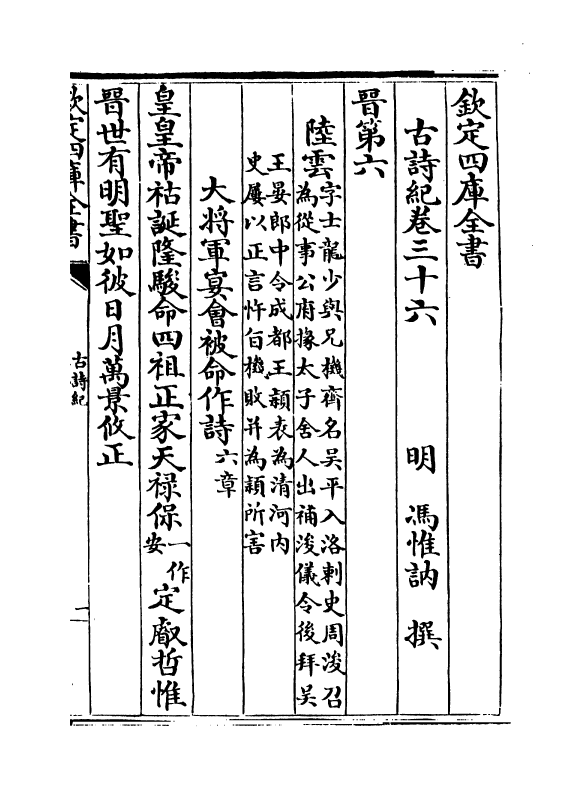 欽定四庫全書
古詩紀卷三十六　明　馮惟訥　撰
晉第六
陸雲字士龍少與兄機齊名吳平入洛刺史周浚召
為從事公府掾太子舍人出補浚儀令後拜吳
王晏郎中令成都王穎表為清河內
史屢以正言忤旨機敗并為穎所害
大將軍宴會被命作詩六章
皇皇帝祜誕隆駿命四祖正家天祿保一作安定叡哲惟
晉世有明聖如彼日月萬景攸正
欽定四庫全書
古詩紀
二